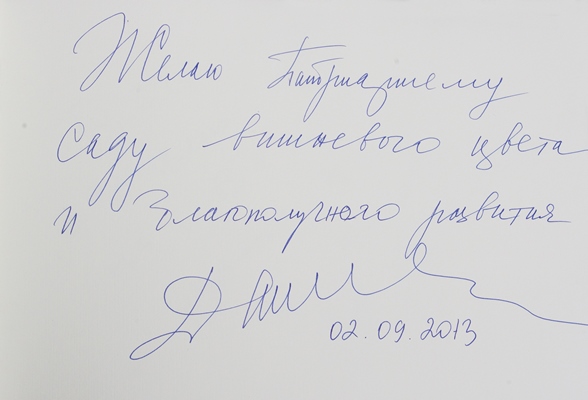 Желаю Патриаршему
саду вишневого цвета
и благополучного развития
02.09.2013